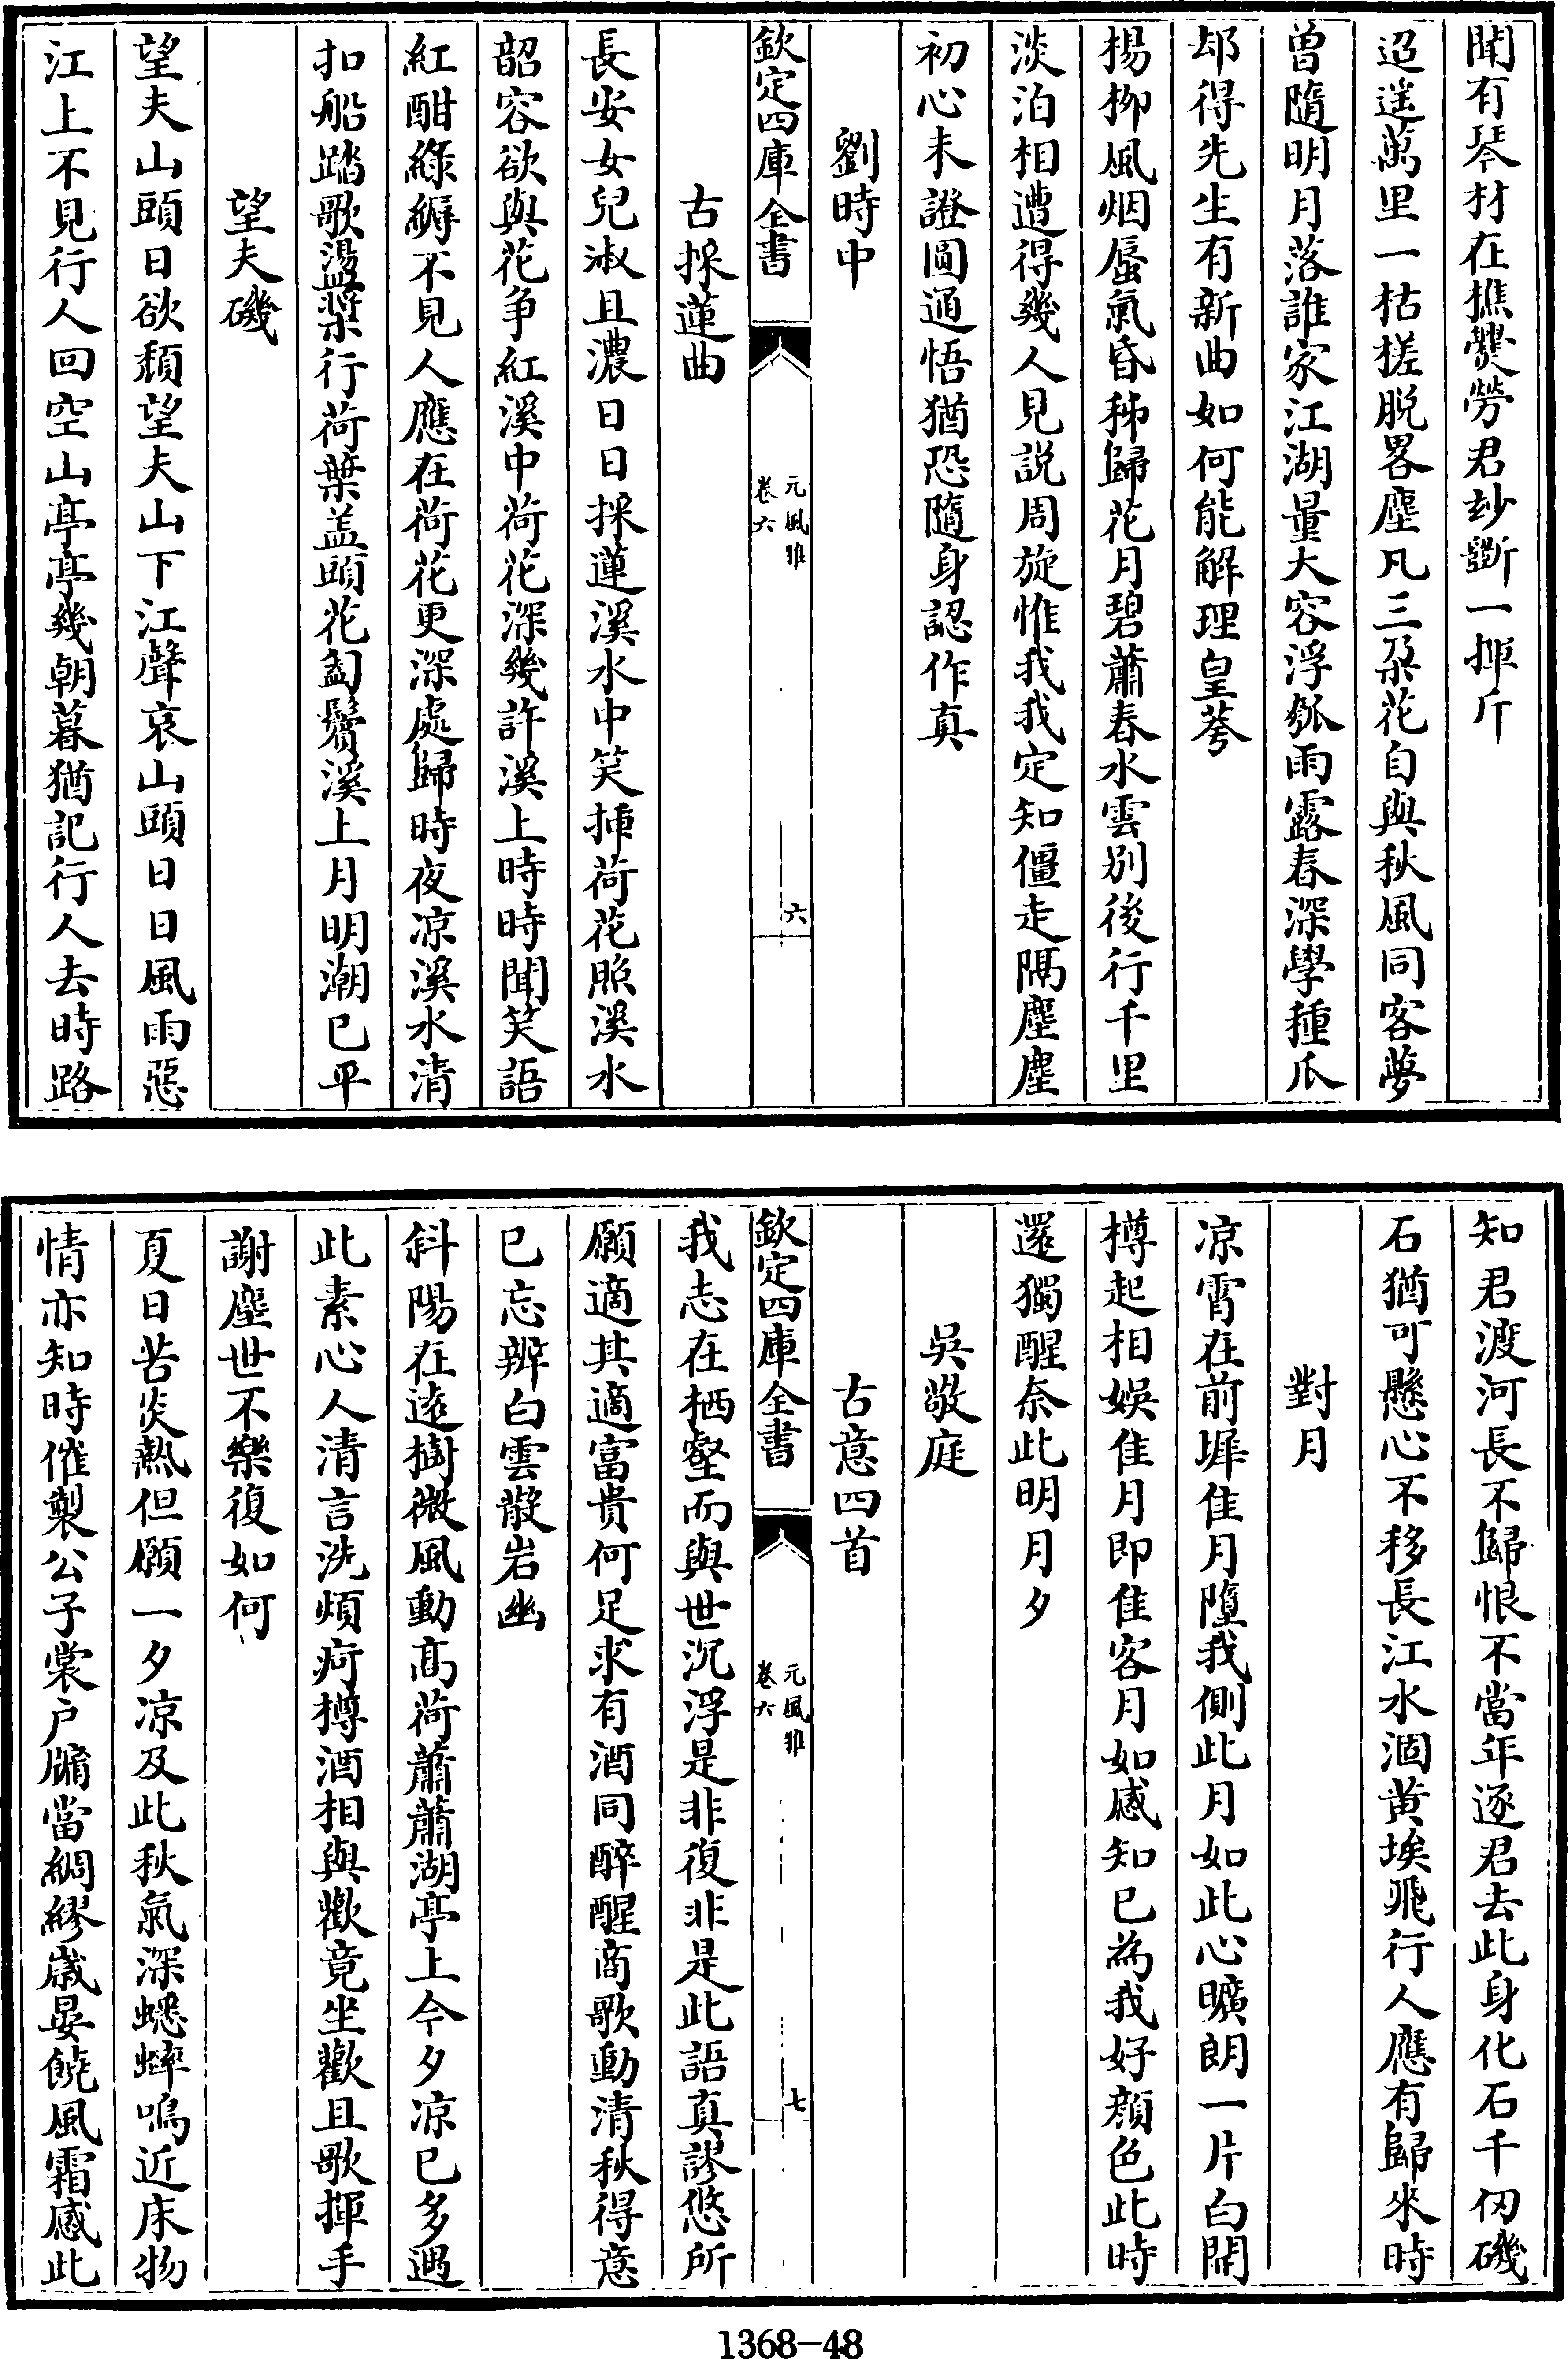 聞有琴材在樵㸑勞君玅斲一揮斤
迢遥萬里一枯槎脱畧塵凡三朶花自與秋風同客夢
曽隨明月落誰家江湖量大容浮瓠雨露春深學種瓜
却得先生有新曲如何能解理皇荂
楊栁風烟蜃氣昏秭歸花月碧蕭春水雲别後行千里
淡泊相遭得幾人見説周旋惟我我定知僵走隔塵塵
初心未證圓通悟猶恐隨身認作真
劉時中
欽定四庫全書
元風雅
卷六
六
古採蓮曲
長安女兒淑且濃日日採蓮溪水中笑揷荷花照溪水
韶容欲與花争紅溪中荷花深幾許溪上時時聞笑語
紅酣綠縟不見人應在荷花更深處歸時夜凉溪水清
扣船踏歌盪槳行荷葉盖頭花匎鬢溪上月明潮已平
望夫磯
望夫山頭日欲頽望夫山下江聲哀山頭日日風雨惡
江上不見行人回空山亭亭幾朝暮猶記行人去時路
知君渡河長不歸恨不當年逐君去此身化石千仞磯
石猶可懸心不移長江水涸黄埃飛行人應有歸來時
對月
凉霄在前墀佳月墮我側此月如此心曠朗一片白開
樽起相娯佳月即佳客月如感知已為我好顔色此時
還獨醒奈此明月夕
吳敬庭
古意四首
欽定四庫全書
元風雅
卷六
七
我志在栖壑而與世沉浮是非復非是此語真謬悠所
願適其適富貴何足求有酒同醉醒商歌動清秋得意
已忘辨白雲散岩幽
斜陽在遠樹微風動髙荷蕭蕭湖亭上今夕凉已多遇
此素心人清言洗煩疴樽酒相與歡竟坐歡且歌揮手
謝塵世不樂復如何
夏日苦炎熱但願一夕凉及此秋氣深蟋蟀鳴近床物
情亦知時催製公子裳户牖當綢繆歳晏饒風霜感此
1368-48